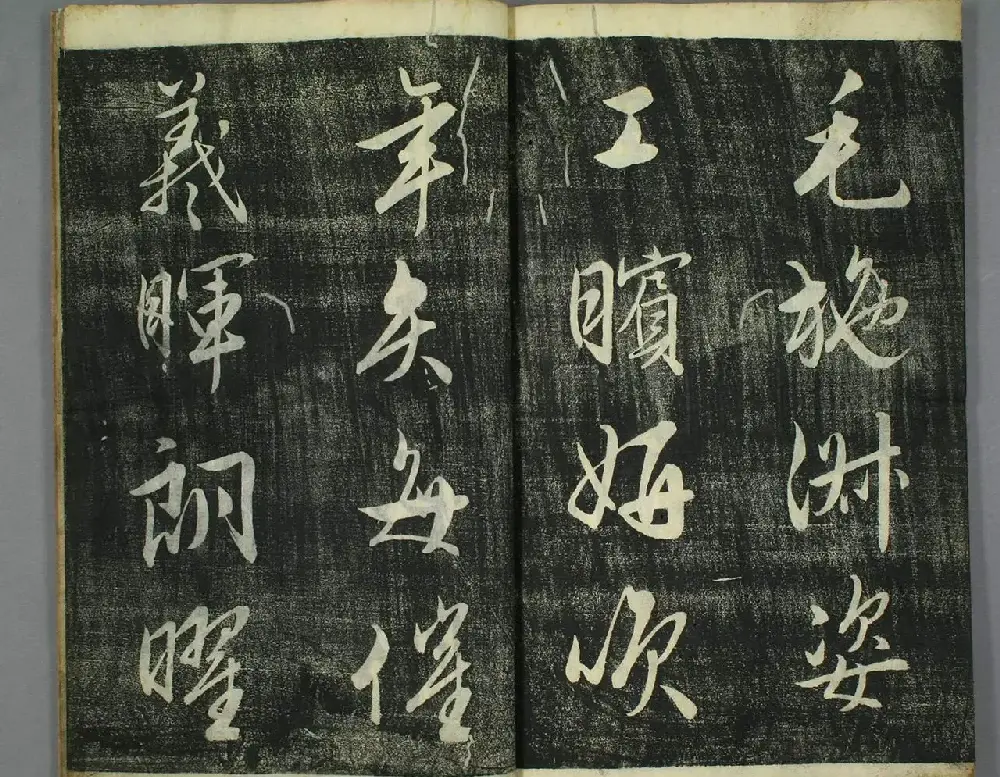 毛施淑姿
工矉妍咲
年矢每催
羲暉朗曜